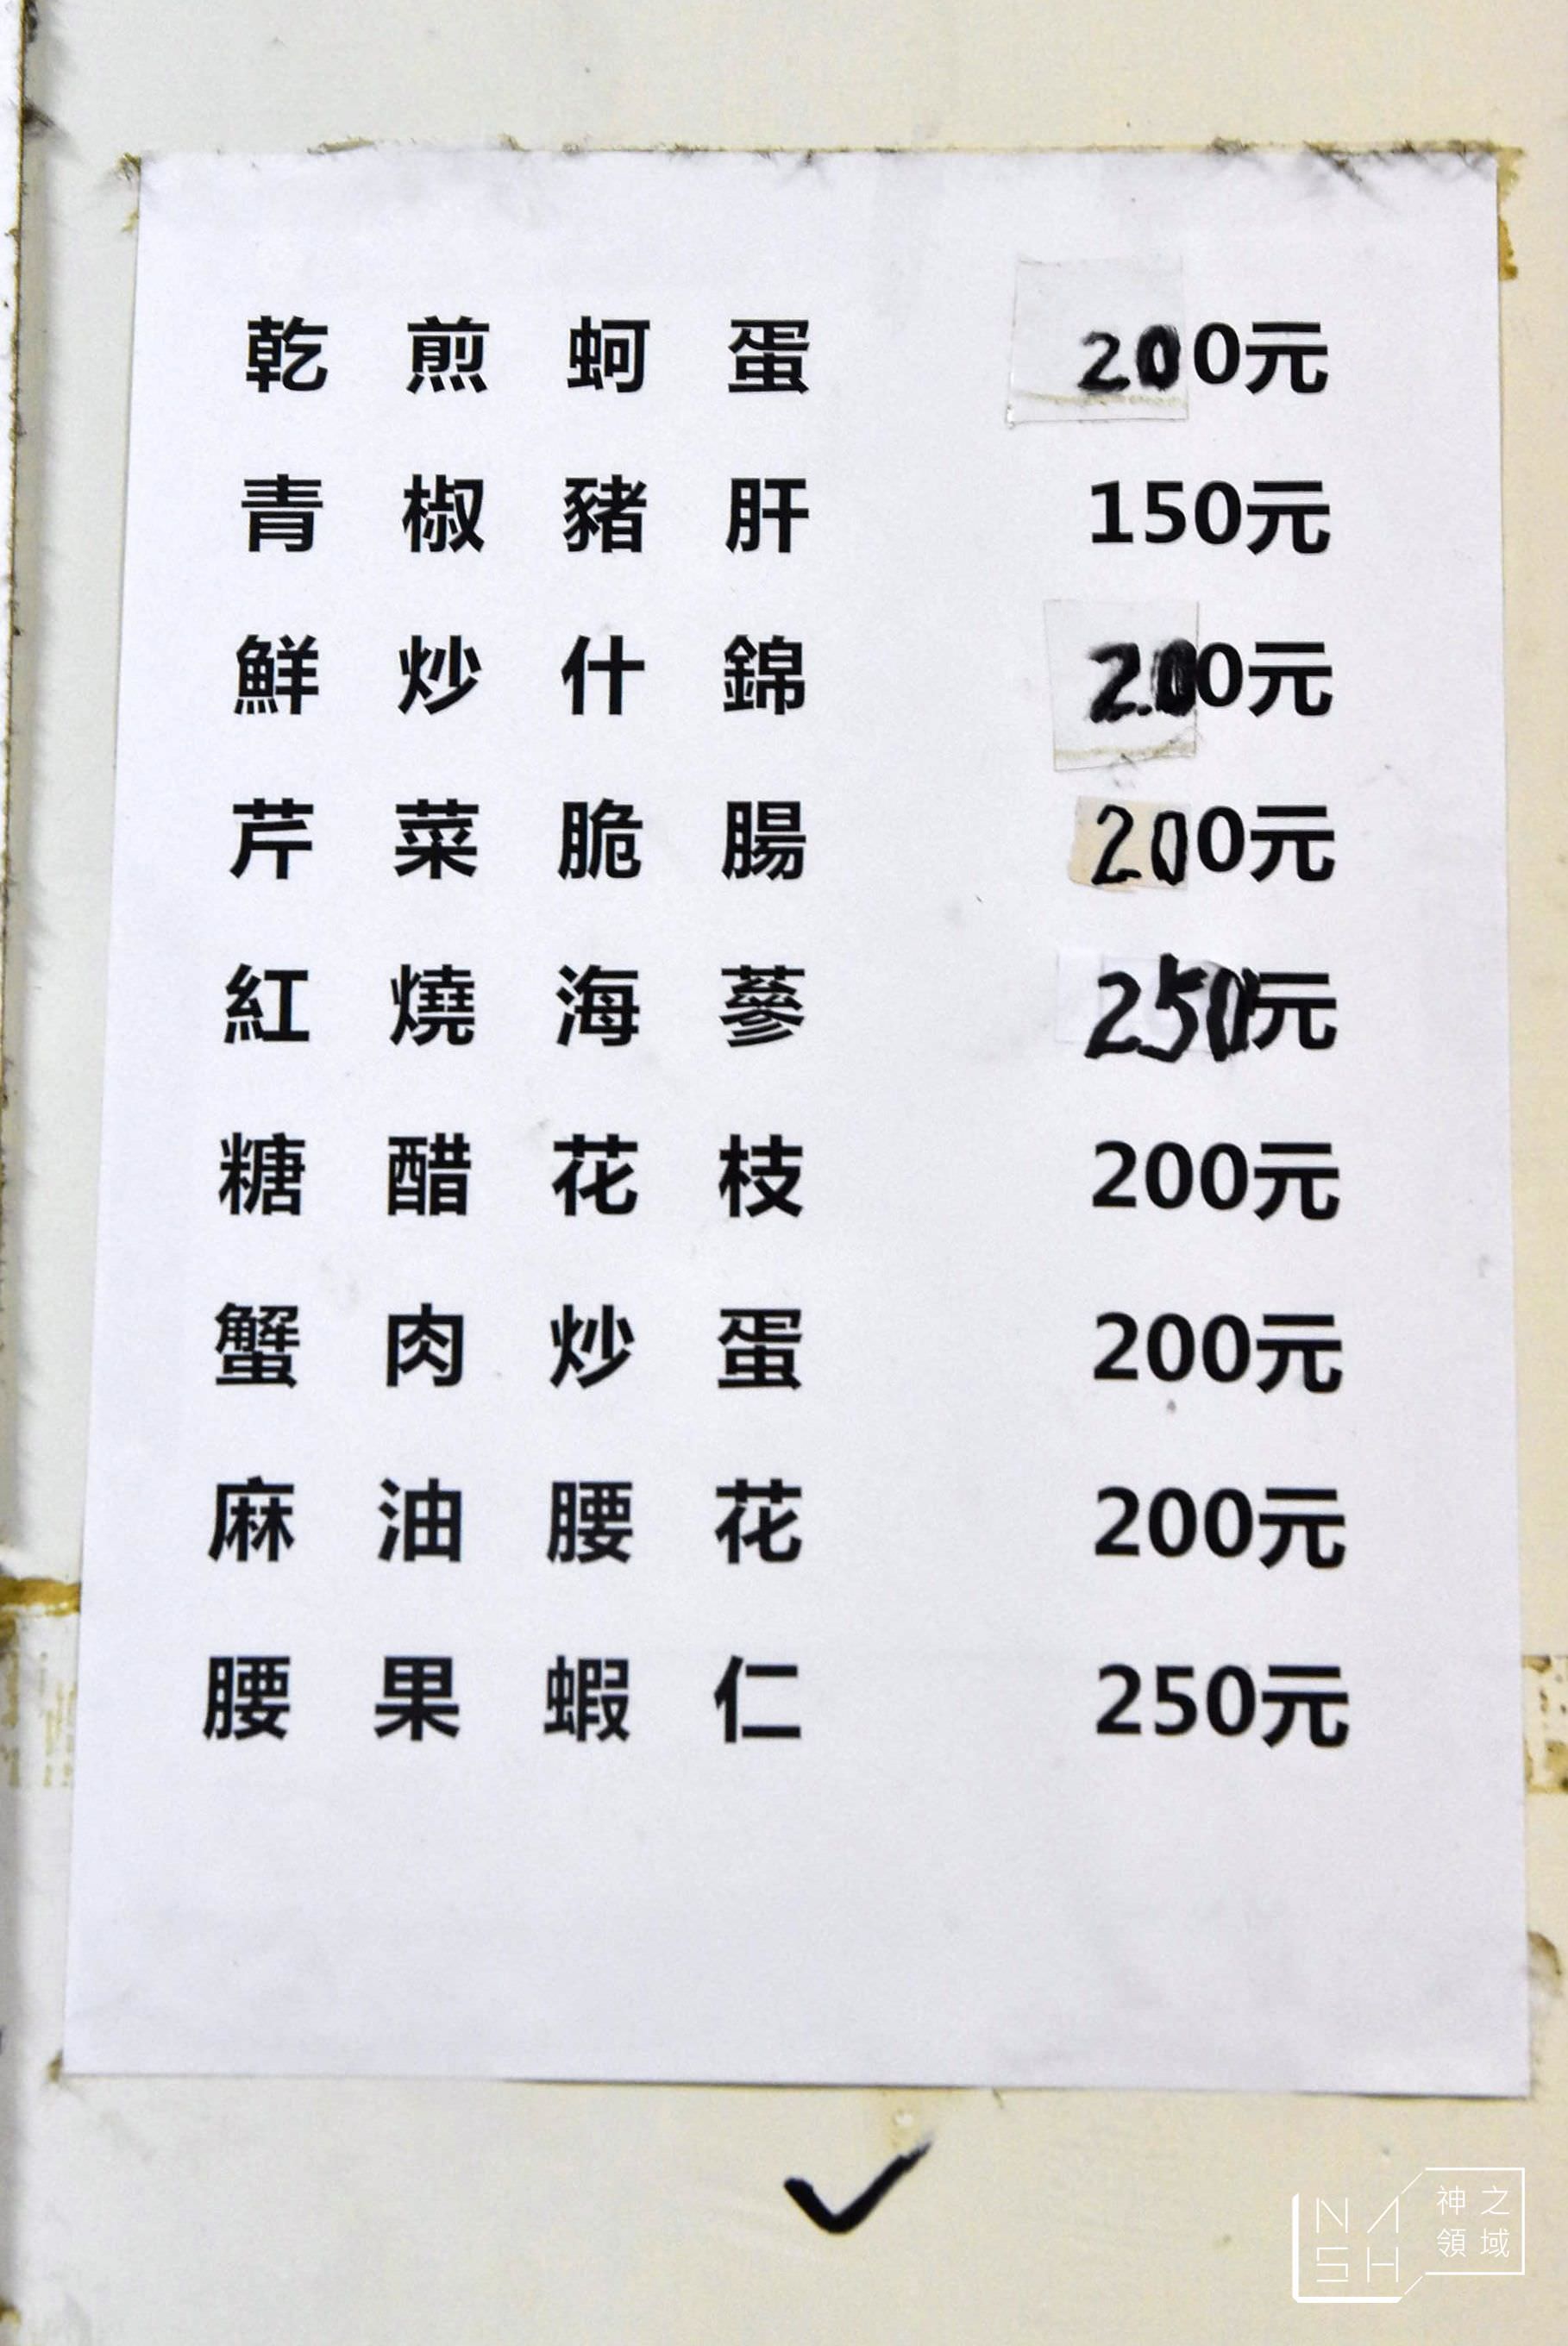 乾煎蚵蛋 200元
青椒豬肝 150元
鮮炒什錦 200元
芹菜脆腸 200元
紅燒海蔘 250元
糖醋花枝 200元
蟹肉炒蛋 200元
麻油腰花 200元
腰果蝦仁 250元
NASH 神之領域